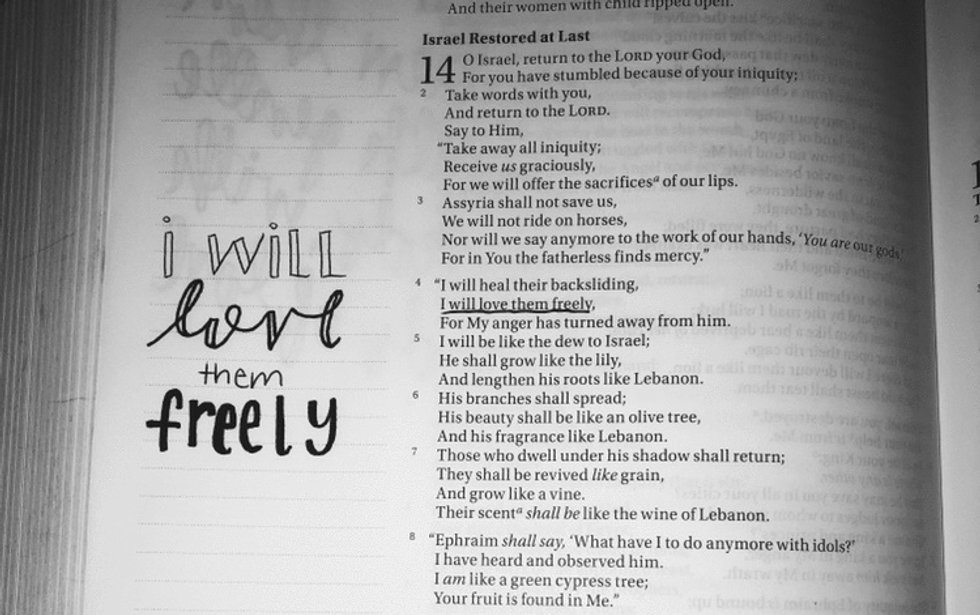 i will
love
them
freely
And their women with child ripped open.
Israel Restored at Last
14 O Israel, return to the LORD your God,
For you have stumbled because of your iniquity;
2 Take words with you,
And return to the LORD.
Say to Him,
“Take away all iniquity;
Receive us graciously,
For we will offer the sacrificesa of our lips.
3 Assyria shall not save us,
We will not ride on horses,
Nor will we say anymore to the work of our hands, ‘You are our gods.’
For in You the fatherless finds mercy.”
4 “I will heal their backsliding,
I will love them freely,
For My anger has turned away from him.
5 I will be like the dew to Israel;
He shall grow like the lily,
And lengthen his roots like Lebanon.
6 His branches shall spread;
His beauty shall be like an olive tree,
And his fragrance like Lebanon.
7 Those who dwell under his shadow shall return;
They shall be revived like grain,
And grow like a vine.
Their scenta shall be like the wine of Lebanon.
8 “Ephraim shall say, ‘What have I to do anymore with idols?’
I have heard and observed him.
I am like a green cypress tree;
Your fruit is found in Me.”